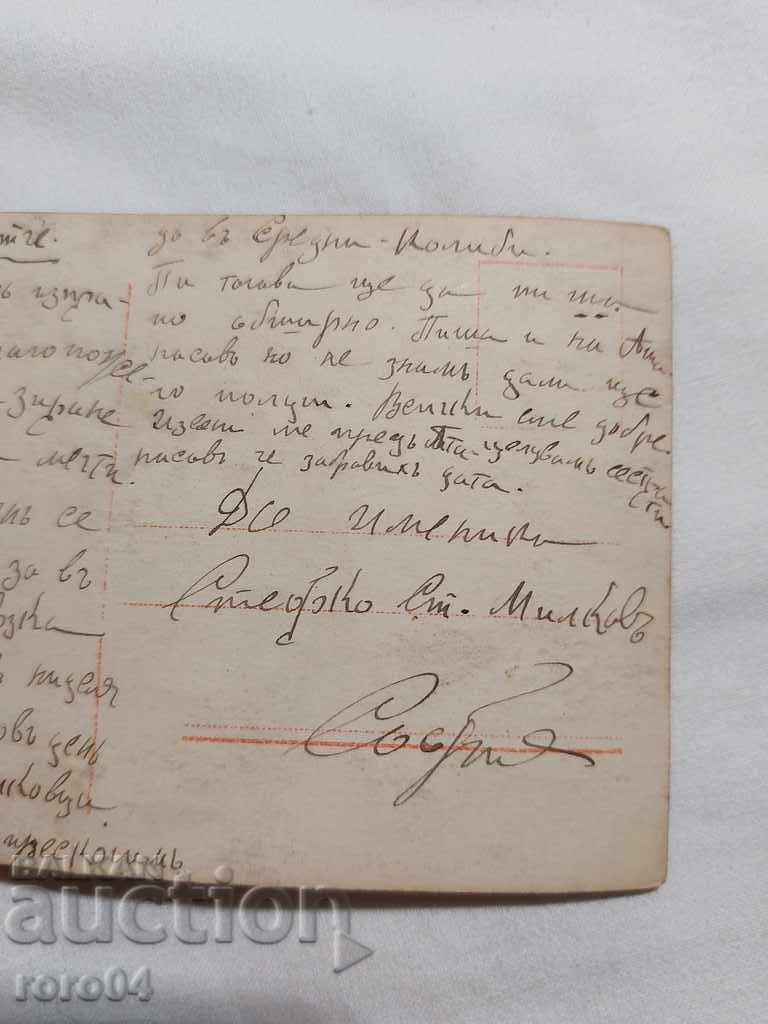 тче.
ъ изпра-
благопо-
же-
-зиране
- мечти.
нъ се
за въ
ъ ниделя
овъ день
ковци.
прескочимъ
да въ Средни-Колиби.
Пи тогава ще да пиша
по обширно. Пиша и на Ата-
насовъ но не знамъ дали ще
го получи. Всички сме добре.
Извени ме предъ Ата- целувамъ
насовъ че забравихъ дата.
До именика
Стефко Ст. Милковъ
София
BALKAN
auction
roro04